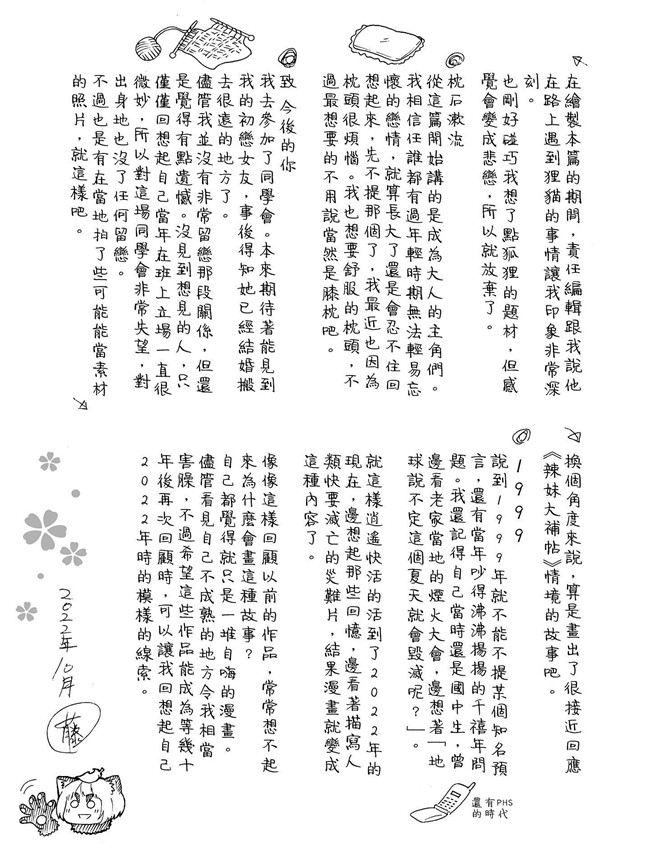 在繪製本篇的期間，責任編輯跟我說他
在路上遇到狸貓的事情讓我印象非常深
刻。
也剛好碰巧我想了點狐狸的題材，但感
覺會變成悲戀，所以就放棄了。
枕石漱流
從這篇開始講的是成為大人的主角們。
我相信任誰都有過年輕時期無法輕易忘
懷的戀情，就算長大了還是會忍不住回
想起來，先不提那個了，我最近也因為
枕頭很煩惱。我也想要舒服的枕頭，不
過最想要的不用說當然是膝枕吧。
致 今後的你
我去參加了同學會。本來期待著能見到
我的初戀女友，事後得知她已經結婚搬
去很遠的地方了。
儘管我並沒有非常留戀那段關係，但還
是覺得有點遺憾。沒見到想見的人，只
僅僅回想起自己當年在班上立場一直很
微妙，所以對這場同學會非常失望，對
出身地也沒了任何留戀。
不過也是有在當地拍了些可能能當素材
的照片，就這樣吧。
換個角度來說，算是畫出了很接近回應
《辣妹大補帖》情境的故事吧。
1999
說到1999年就不能不提某個知名預
言，還有當年吵得沸沸揚揚的千禧年問
題。我還記得自己當時還是國中生，曾
邊看老家當地的煙火大會，邊想著「地
球說不定這個夏天就會毀滅呢？」。
就這樣逍遙快活的活到了2022年的
現在，邊想起那些回憶，邊看著描寫人
類快要滅亡的災難片，結果漫畫就變成
這種內容了。
像像這樣回顧以前的作品，常常想不起
來為什麼會畫這種故事？
自己都覺得就只是一堆自嗨的漫畫。
儘管看見自己不成熟的地方令我相當
害臊，不過希望這些作品能成為等幾十
年後再次回顧時，可以讓我回想起自己
2022年時的模樣的線索。
2022年10月
藤
還有PHS
的時代